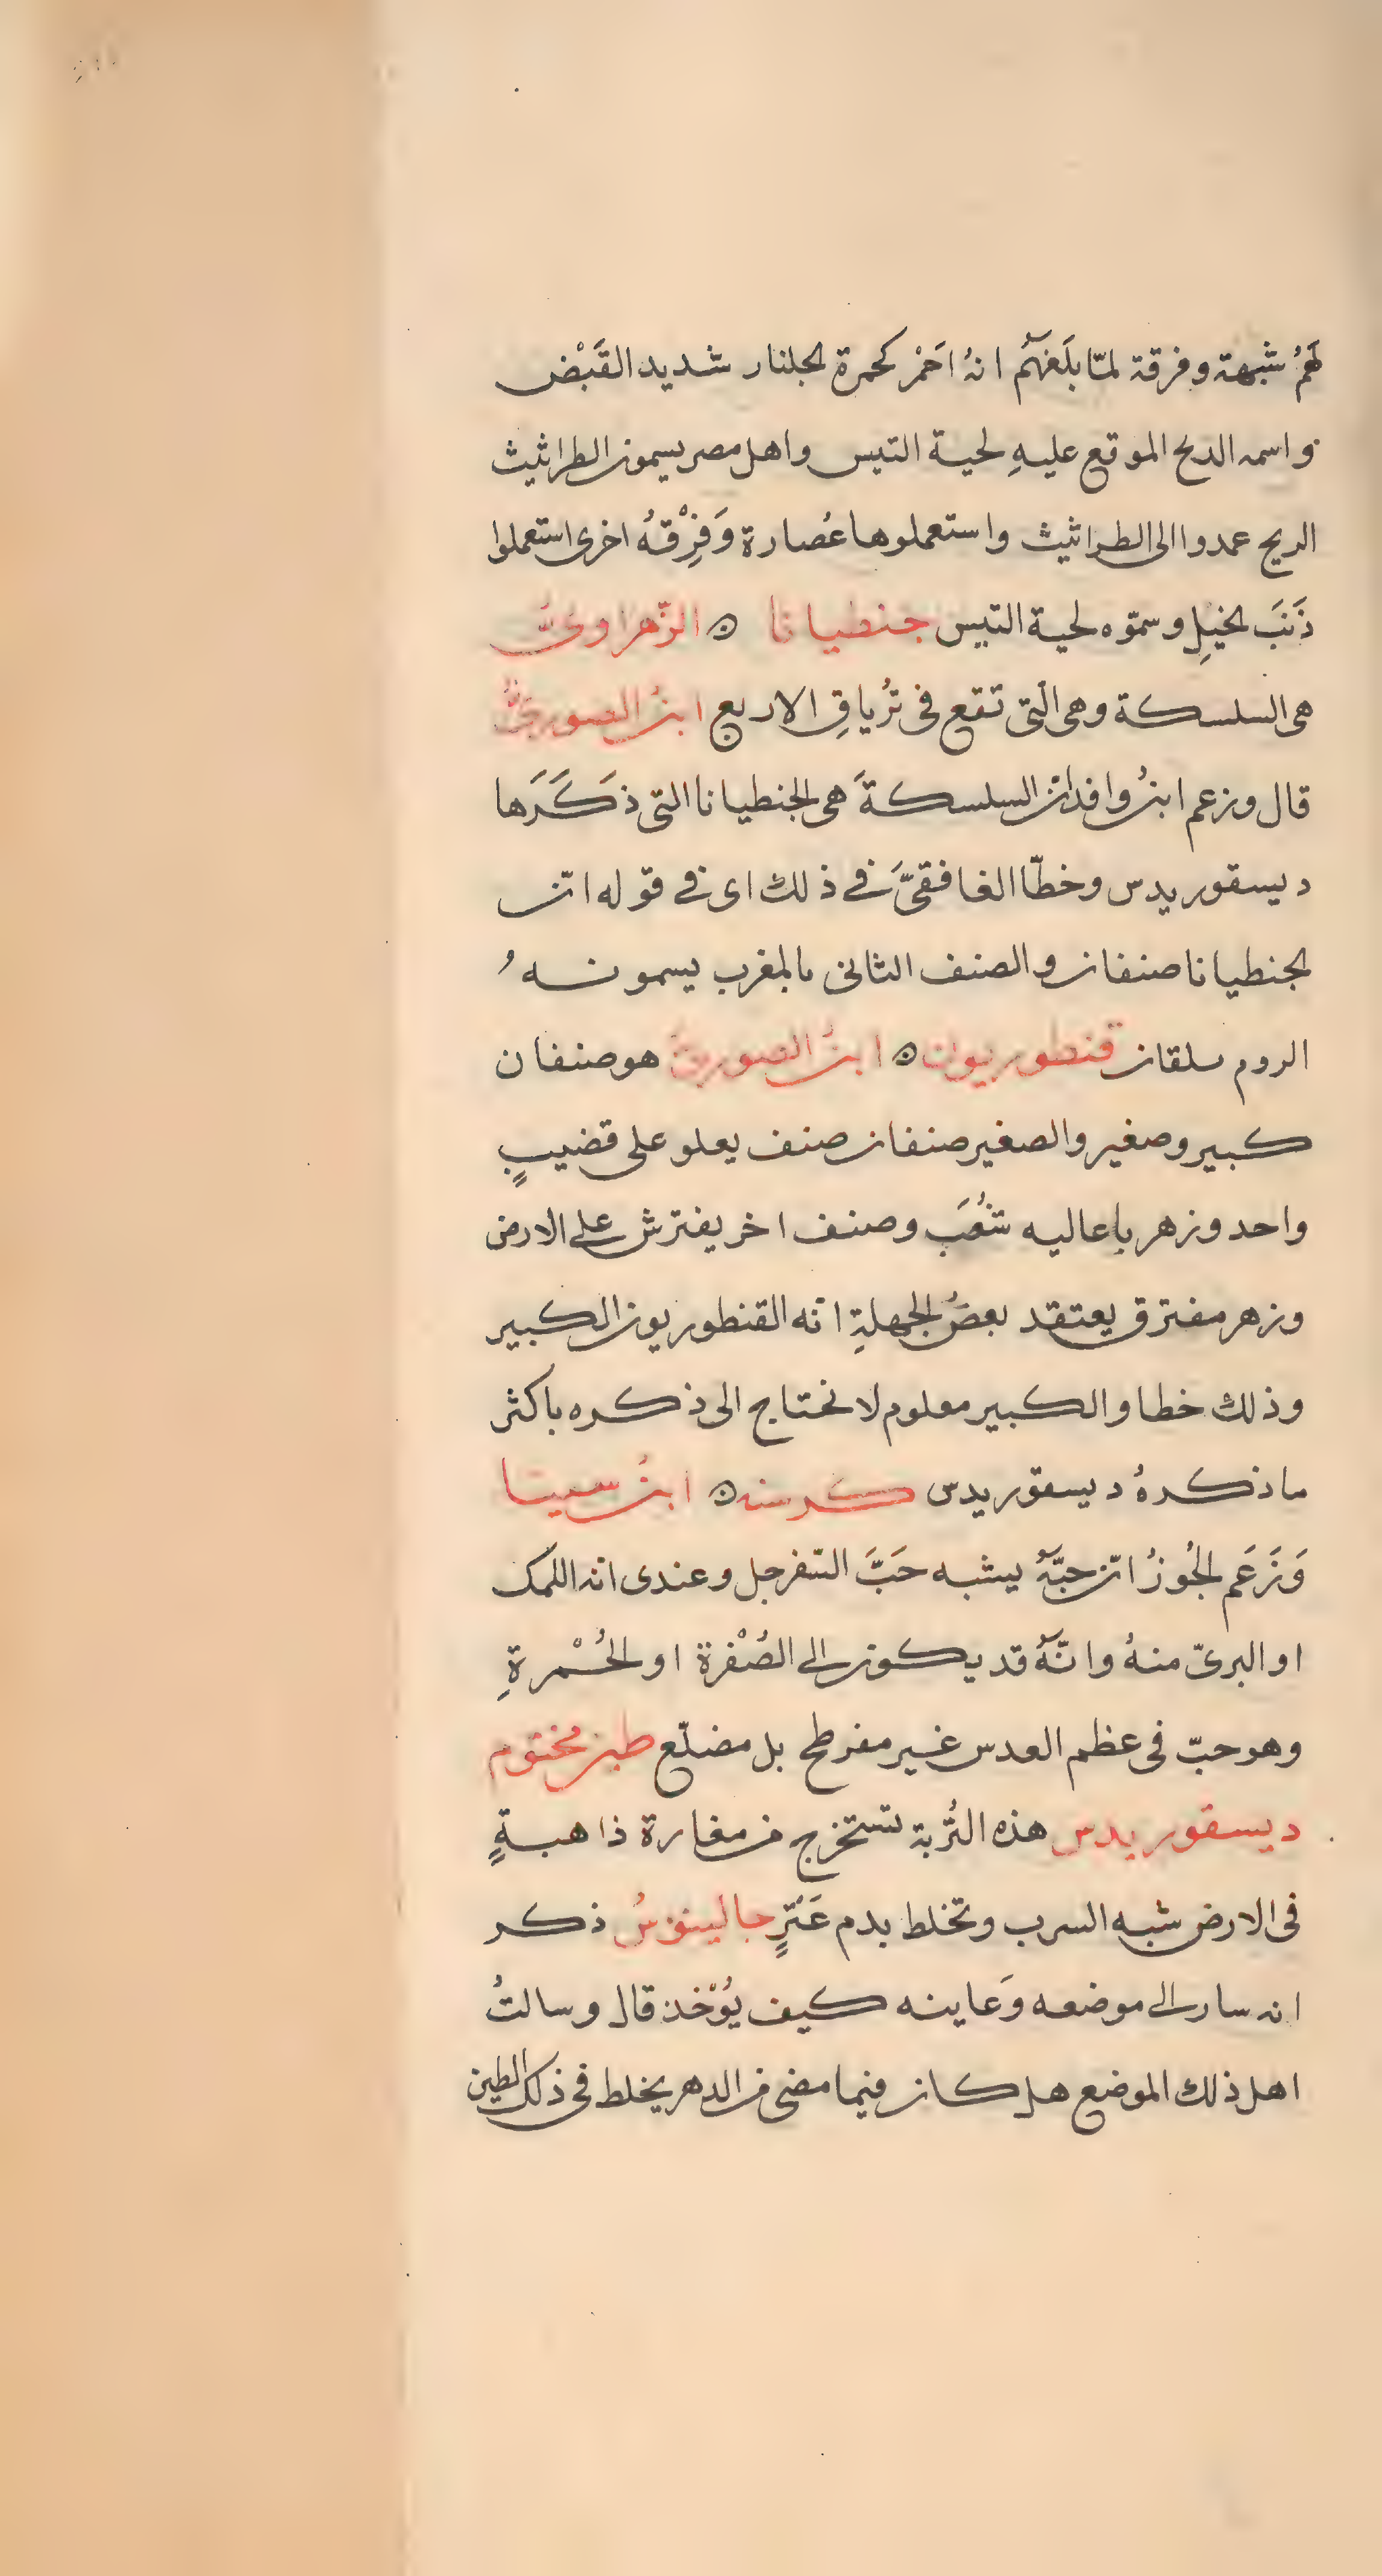 لهمُ شبهة وفرقة لمّا بلَغهُم انهُ احَمْر كحمرة الجلنار شديد القَبْض
واسمه الدبح الموقع عليهِ لحية التيس واهل مصر يسمون الطراثيث
الريح عمدوا الى الطراثيث واستعملوها عُصارة وَفِرْقهُ اخرى استعملوا
ذَنَبَ الخيلِ وسمّوه لحية التيس جنطيانا ۞ الزّهراوىُّ
هى السلسكة وهى الّتى تقع فى تُرياقِ الاربع ابنُ الصورىّ
قال وزعم ابنُ وافد انّ السلسكةَ هى الجنطيانا التى ذَكَرَها
ديسقوريدس وخطّا الغافقىَّ في ذلك اى في قوله انّ
الجنطيانا صنفان والصنف الثانى بالمغرب يسمونهُ
الروم سلقان قنطوريون ۞ ابنُ الصورىّ هو صنفان
كبير وصغير والصغير صنفان صنف يعلو على قضيبٍ
واحد وزهر باعاليه شُعَب وصنف اخر يفترش على الارض
وزهر مفترق يعتقد بعضُ الجهلةِ انّه القنطوريون الكبير
وذلك خطا والكبير معلوم لا نحتاج الى ذكره باكثر
ما ذكرهُ ديسقوريدس كرسنه ۞ ابنُ سينا
وَزَعَم الخُوزُ انّ حبّهُ يشبه حَبَّ السّفرجل وعندى انه اللمك
او البرىّ منهُ وانّهُ قد يكون الى الصُفْرة او الحُمْرةِ
وهو حبّ فى عظم العدس غير مفرطح بل مضلّع طين مختوم
ديسقوريدس هذه التُّربة تستخرج من مغارة ذاهبةٍ
فى الارض شبه السرب وتخلط بدم عَنْزٍ جالينوسُ ذكر
انه سار الى موضعه وَعاينه كيف يُؤْخذ قال وسالتُ
اهل ذلك الموضع هل كان فيما مضى من الدهر يخلط فى ذلك الطين